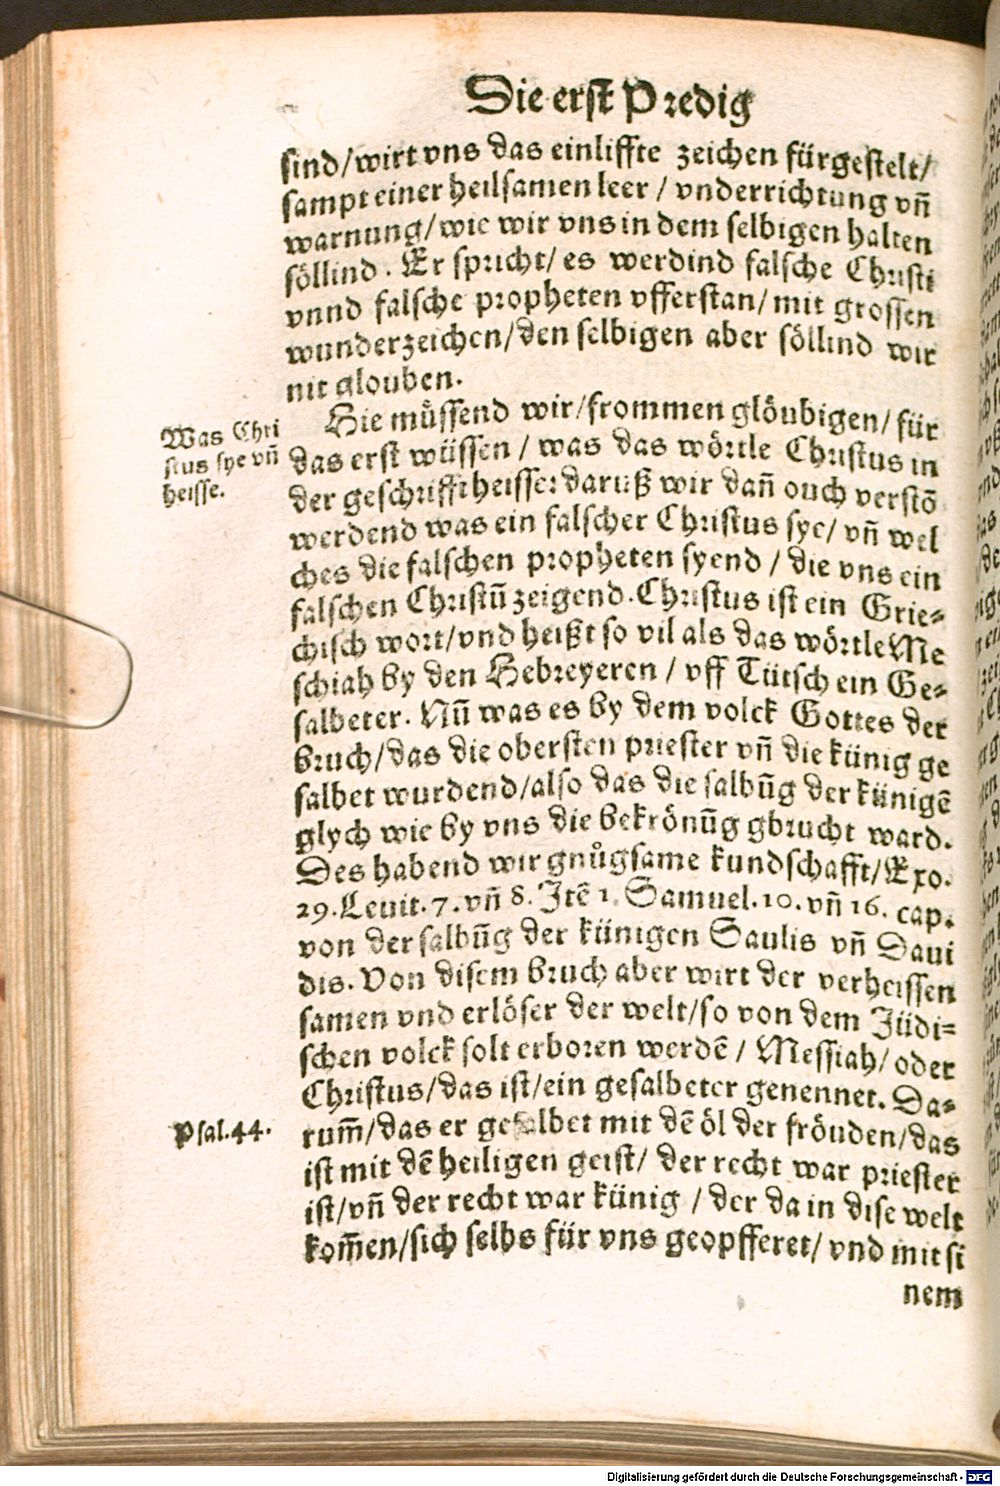 Die erst Predig
sind/wirt vns das einliffte zeichen fürgestelt/
sampt einer heilsamen leer / vnderrichtung vñ
warnung/wie wir vns in dem selbigen halten
söllind. Er spricht/ es werdind falsche Christi
vnnd falsche propheten vfferstan/ mit grossen
wunderzeichen/den selbigen aber söllind wir
nit glouben.
Hie müssend wir/frommen glöubigen/ für
Was Chri
stus sye vñ
heisse.
das erst wüssen / was das wörtle Christus in
der geschrifft heisse: daruß wir dañ ouch verstõ
werdend was ein falscher Christus sye/ vñ wel
ches die falschen propheten syend / die vns ein
falschen Christũ zeigend. Christus ist ein Grie-
chisch wort/vnd heißt so vil als das wörtle Me
schiah by den Hebreyeren / vff Tütsch ein Ge-
salbeter. Nũ was es by dem volck Gottes der
bruch/das die obersten priester vñ die künig ge
salbet wurdend/also das die salbũg der künigẽ
glych wie by vns die bekrönũg gbrucht ward.
Des habend wir gnůgsame kundschafft/Exo.
29. Leuit. 7. vñ 8. Itẽ 1. Samuel. 10. vñ 16. cap.
von der salbũg der künigen Saulis vñ Daui
dis. Von disem bruch aber wirt der verheissen
samen vnd erlöser der welt/so von dem Jüdi-
schen volck solt erboren werdẽ / Messiah/ oder
Christus/das ist/ein gesalbeter genennet. Da-
Psal. 44.
rum̃/das er gesalbet mit dẽ öl der fröuden/das
ist mit dẽ heiligen geist/ der recht war priester
ist/vñ der recht war künig / der da in dise welt
kom̃en/sich selbs für vns geopfferet/ vnd mit si
nem
Digitalisierung gefördert durch die Deutsche Forschungsgemeinschaft - DFG